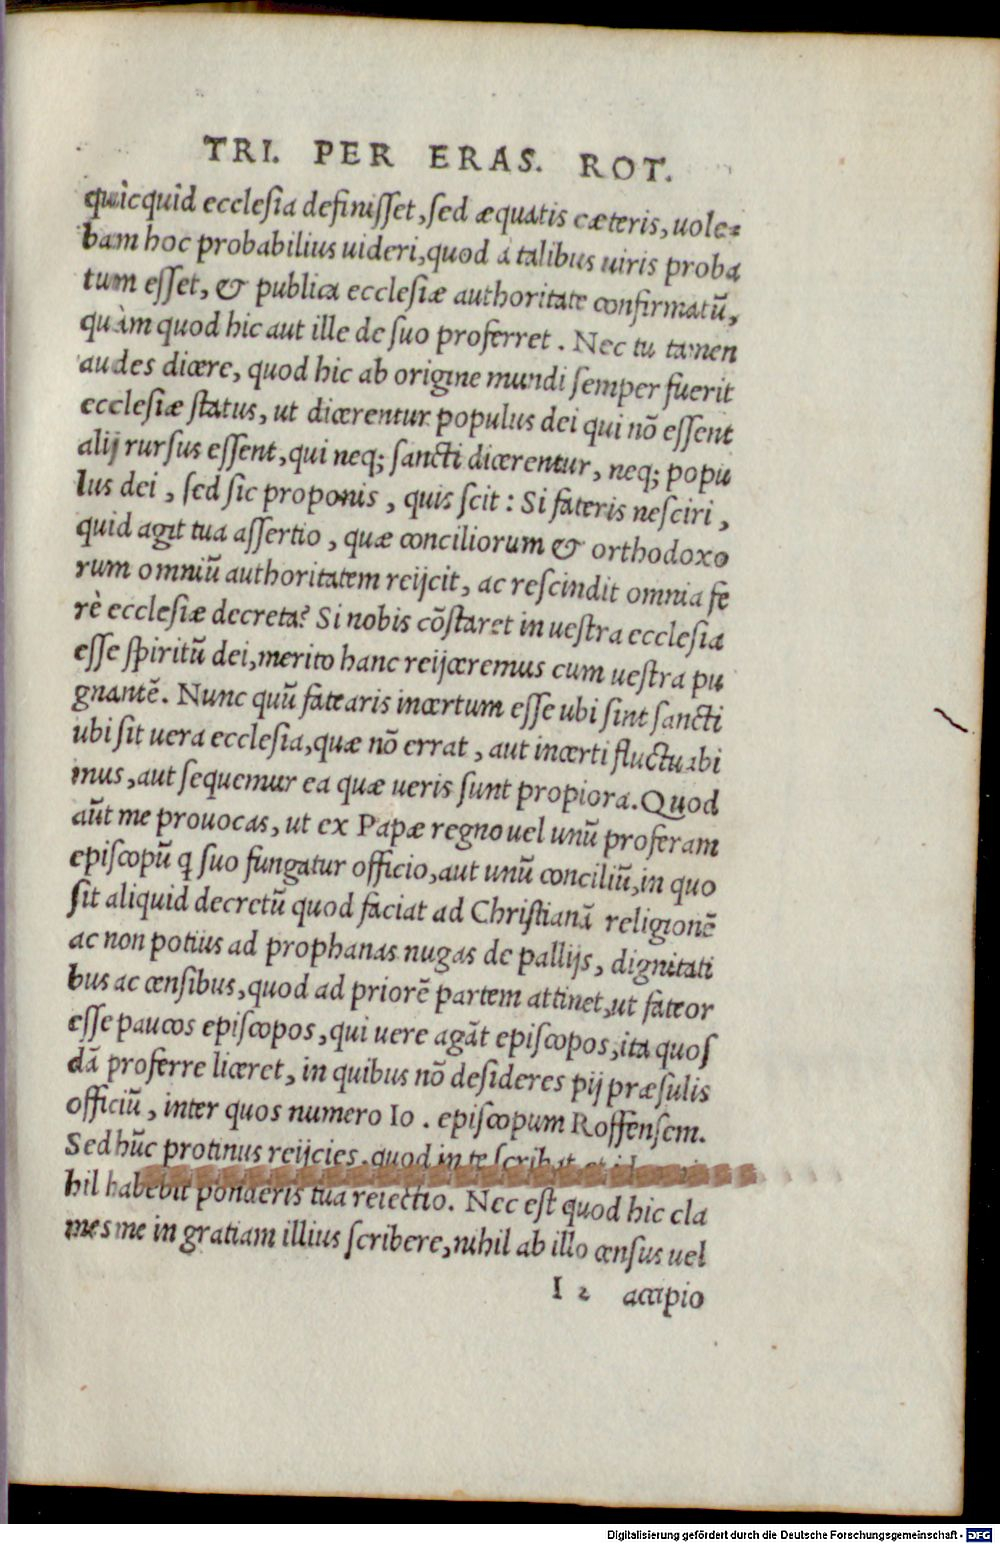 TRI. PER ERAS. ROT.
quicquid ecclesia definisset, sed æquatis cæteris, uole⸗
bam hoc probabilius uideri, quod à talibus uiris proba
tum esset, & publica ecclesiæ authoritate confirmatū,
quàm quod hic aut ille de suo proferret. Nec tu tamen
audes dicere, quod hic ab origine mundi semper fuerit
ecclesiæ status, ut dicerentur populus dei qui nō essent
alij rursus essent, qui neq; sancti dicerentur, neq; popu
lus dei, sed sic proponis, quis scit: Si fateris nesciri,
quid agit tua assertio, quæ conciliorum & orthodoxo
rum omniū authoritatem reijcit, ac rescindit omnia fe
rè ecclesiæ decreta? Si nobis cōstaret in uestra ecclesia
esse spiritū dei, merito hanc reijceremus cum uestra pu
gnantē. Nunc quū fatearis incertum esse ubi sint sancti
ubi sit uera ecclesia, quæ nō errat, aut incerti fluctuabi
mus, aut sequemur ea quæ ueris sunt propiora. Quod
aūt me prouocas, ut ex Papæ regno uel unū proferam
episcopū q suo fungatur officio, aut unū conciliū, in quo
sit aliquid decretū quod faciat ad Christianā religionē
ac non potius ad prophanas nugas de pallijs, dignitati
bus ac censibus, quod ad priorē partem attinet, ut fateor
esse paucos episcopos, qui uere agāt episcopos, ita quos
dā proferre liceret, in quibus nō desideres pij præsulis
officiū, inter quos numero Io. episcopum Roffensem.
Sed hūc protinus reijcies, quod in te scribat
hil habebit ponderis tua reiectio. Nec est quod hic cla
mes me in gratiam illius scribere, nihil ab illo census uel
I 2 accipio
Digitalisierung gefördert durch die Deutsche Forschungsgemeinschaft - DFG